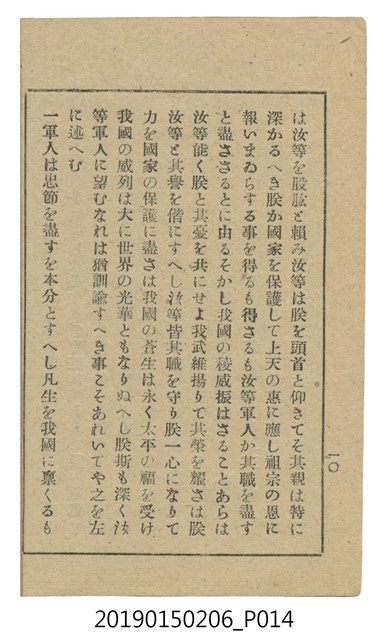 は汝等を股肱と頼み汝等は朕を頭首と仰きてそ其親は特に
深かるへき朕か國家を保護して上天の惠に應し祖宗の恩に
報いまゐらする事を得るも得さるも汝等軍人か其職を盡す
と盡ささるとに由るそかし我國の稜威振はさることあらは
汝等能く朕と其憂を共にせよ我武維揚りて其榮を耀さは朕
汝等と其譽を偕にすへし汝等皆其職を守り朕一心になりて
力を國家の保護に盡さは我國の蒼生は永く太平の福を受け
我國の威列は大に世界の光華ともなりぬへし朕斯も深く汝
等軍人に望むなれは猶訓諭すへき事こそあれいてや之を左
に述へむ
一軍人は忠節を盡すを本分とすへし凡生を我國に禀くるも
一〇
20190150206_P014